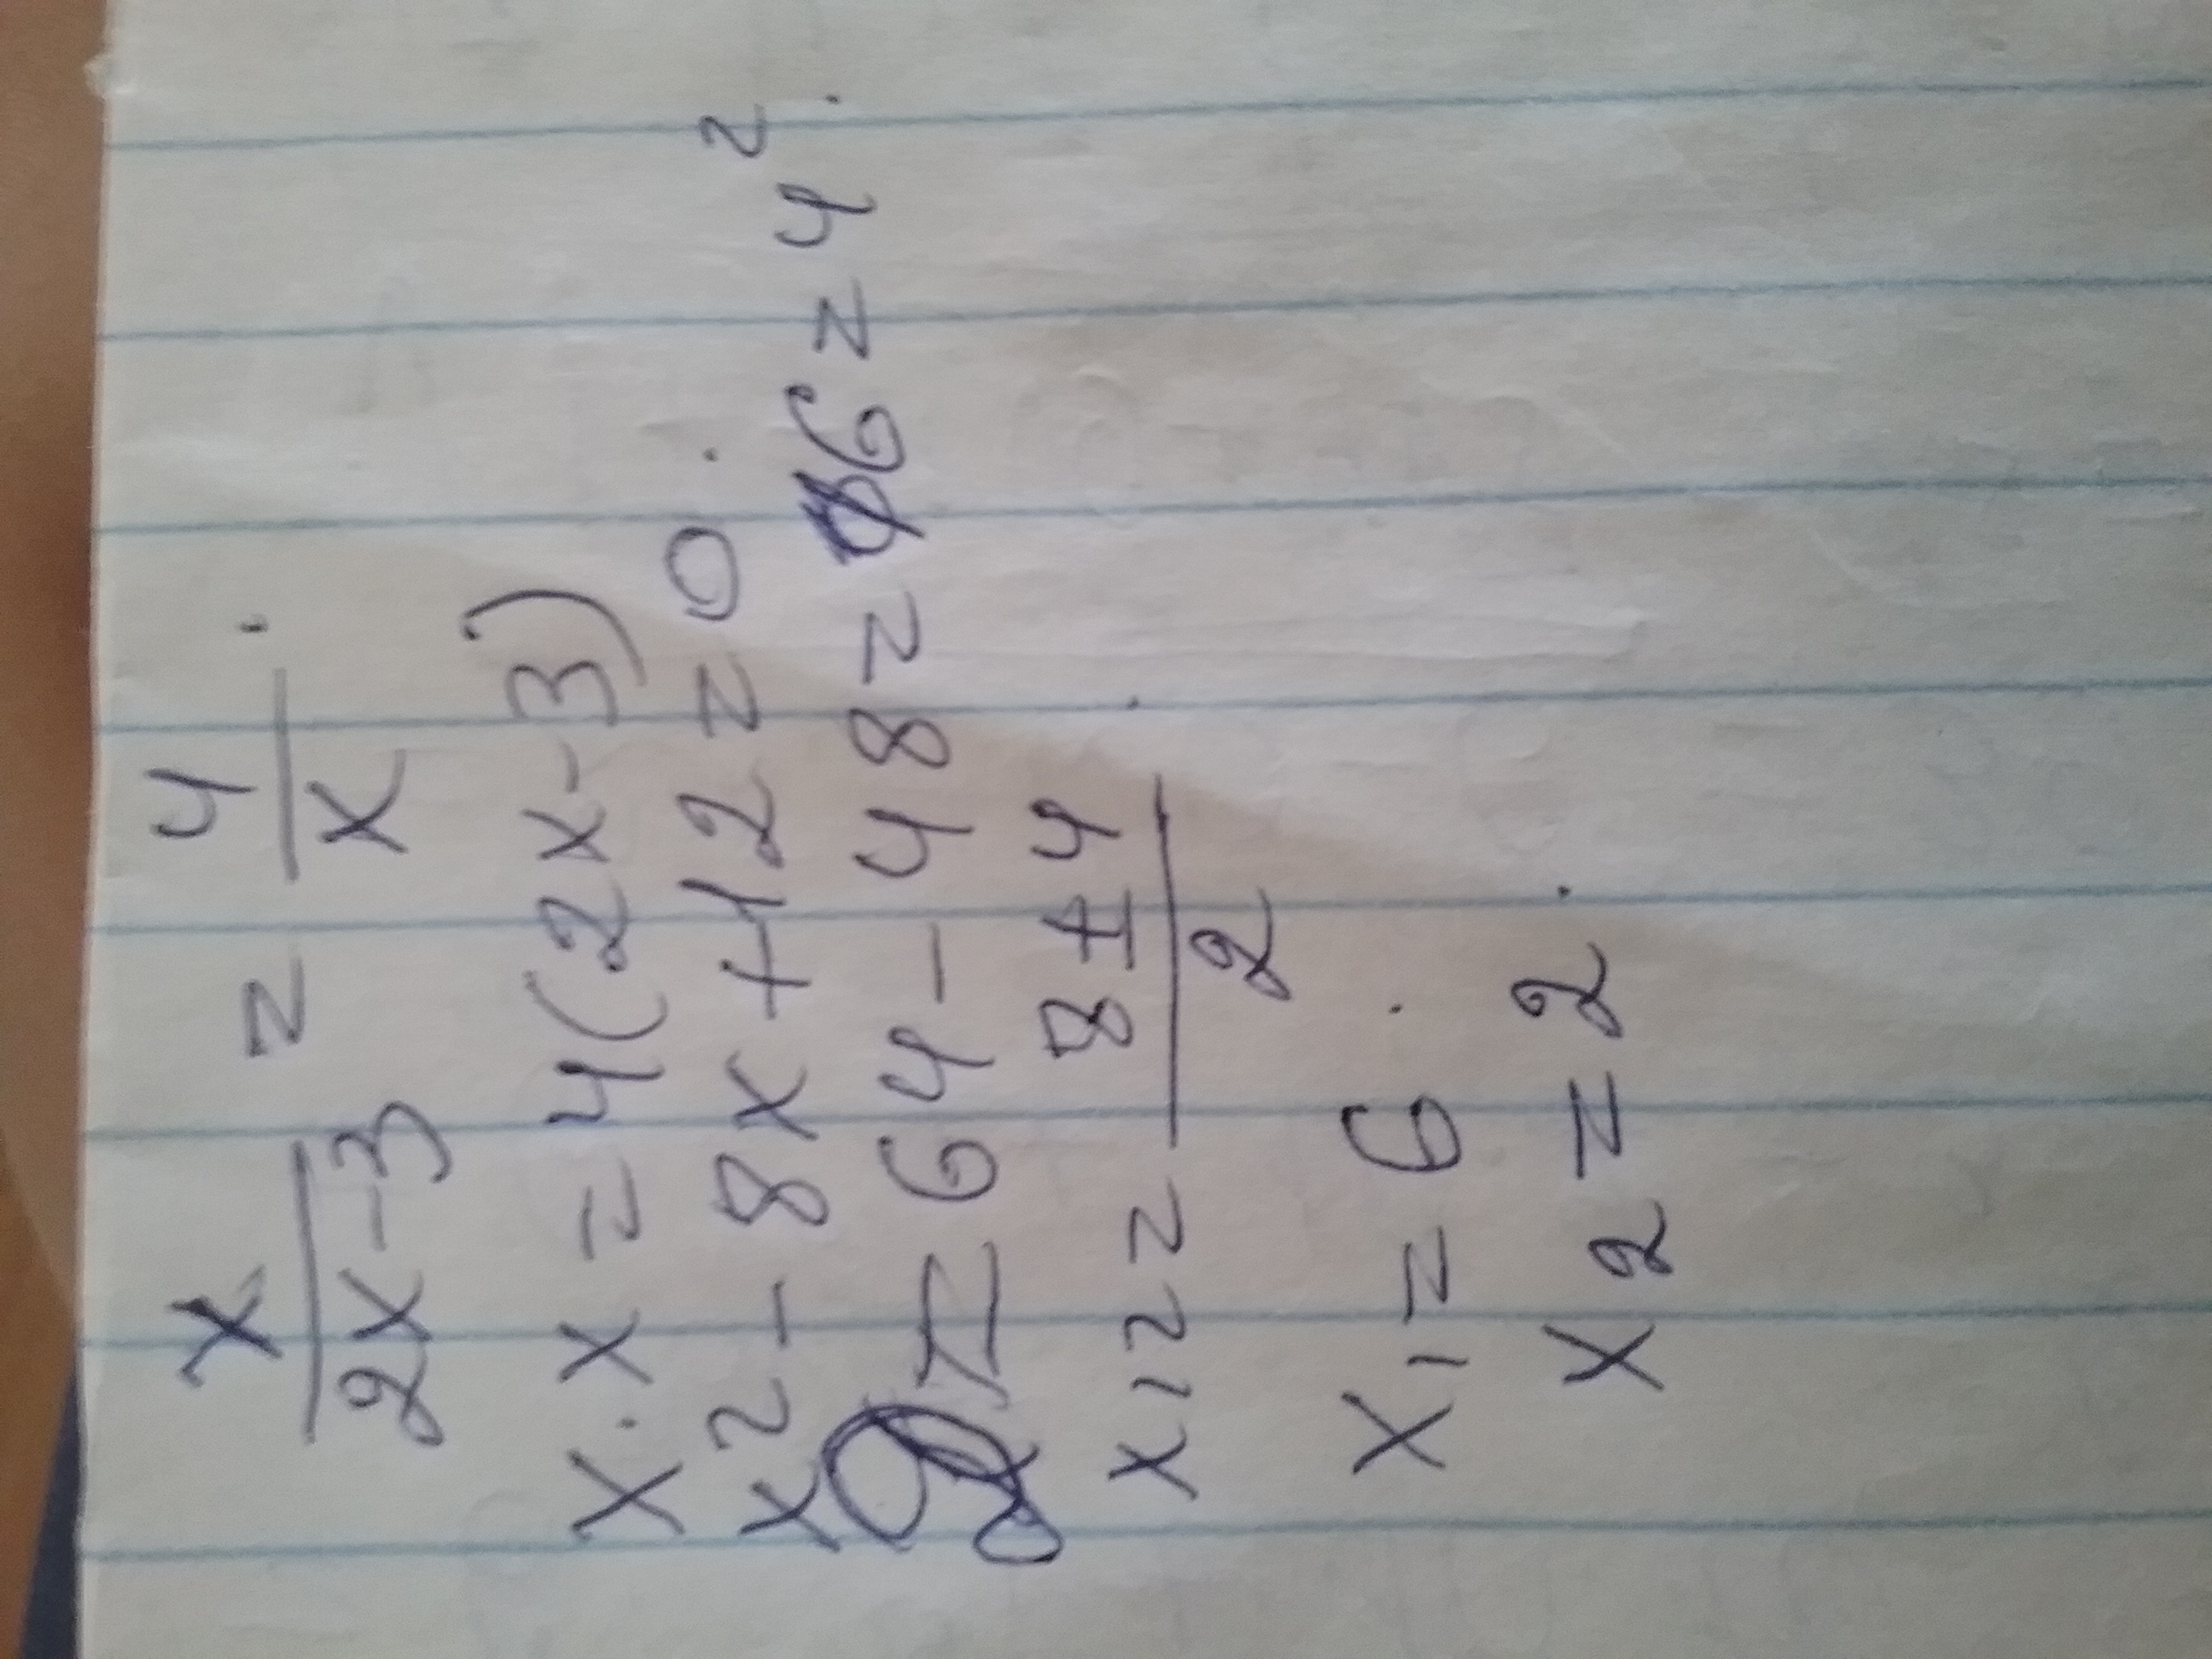 x/(2x-3) = 4/x.
x·x = 4(2x-3)
x² - 8x + 12 = 0.
D = 64 - 48 = 16 = 4².
x12 = (8 ± 4)/2.
x1 = 6.
x2 = 2.